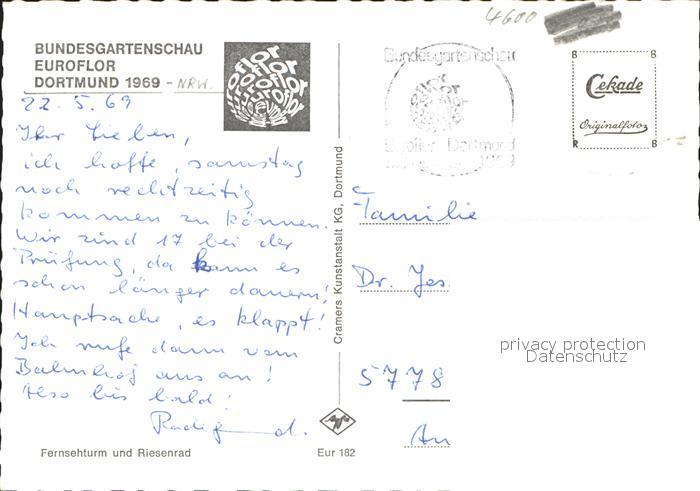 4600
BUNDESGARTENSCHAU
EUROFLOR
DORTMUND 1969 - NRW.
euroflor
22.5.69
Ihr Lieben,
ich hoffe, samstag
noch rechtzeitig
kommen zu können.
Wir sind 17 bei der
Prüfung, da kann es
schon länger dauern!
Hauptsache, es klappt!
Ich rufe dann vom
Bahnhof aus an!
Also bis bald!
Fernsehturm und Riesenrad
Eur 182
Cramers Kunstanstalt KG, Dortmund
Bundesgartenschau
Euroflor Dortmund
1969
B B
Cekade
Originalfoto
R B
Familie
Dr. Jes
privacy protection
Datenschutz
5778